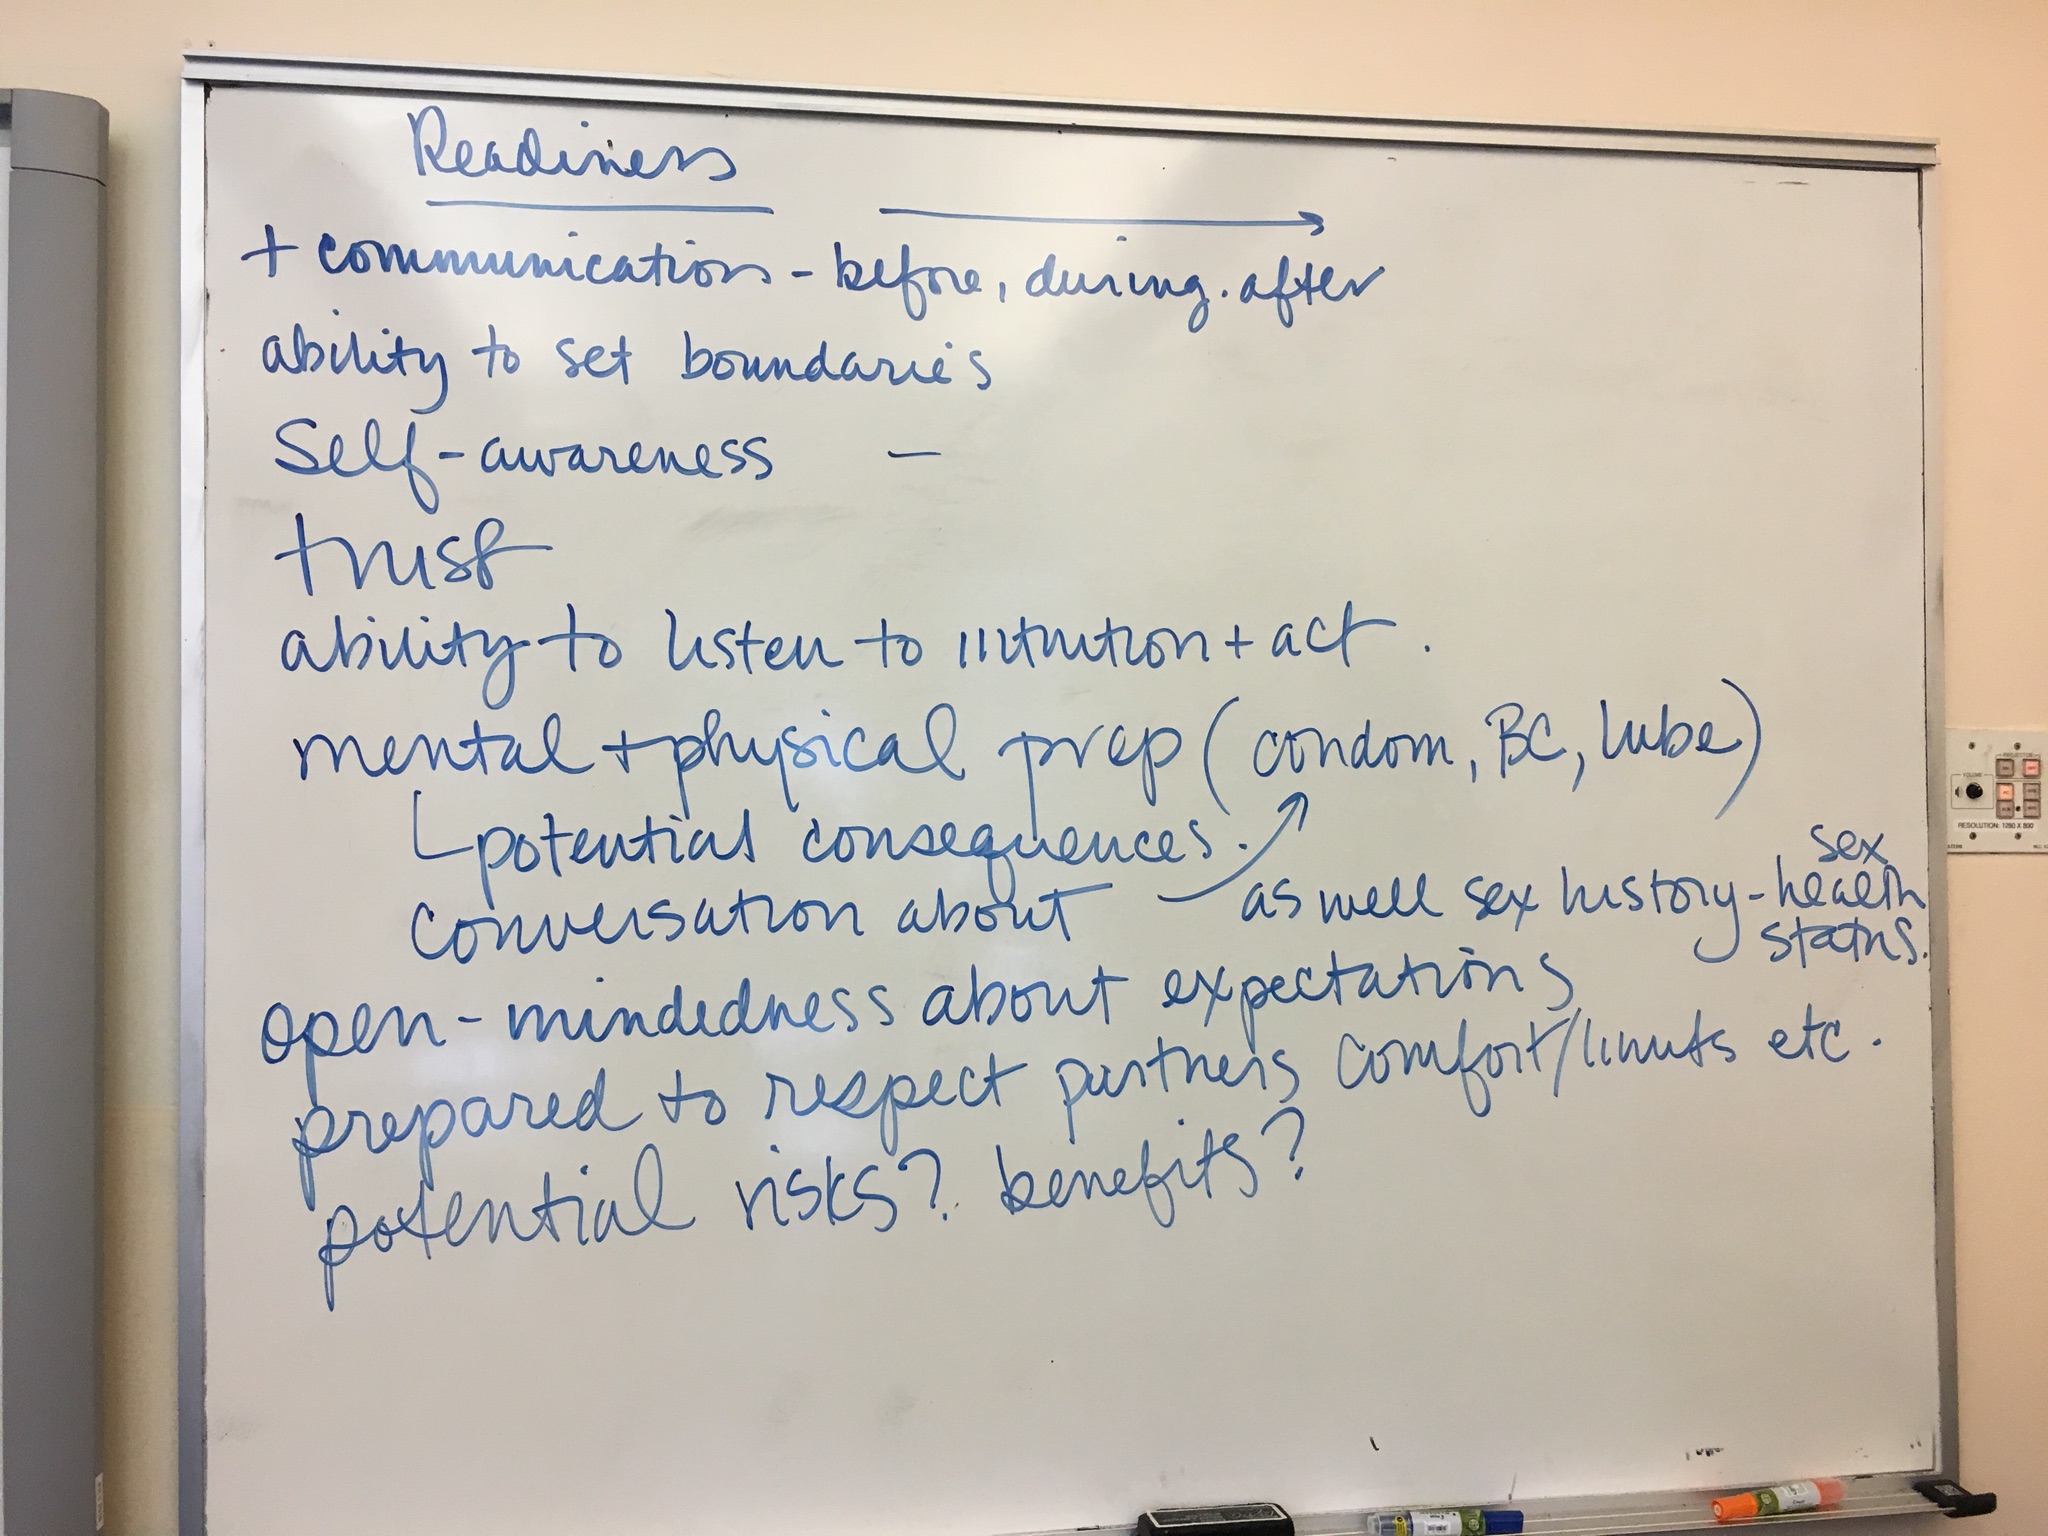 Readiness
+ communication - before, during. after
ability to set boundaries
Self-awareness -
trust
ability to listen to intuition + act.
mental + physical prep (condom, BC, lube)
potential consequences.
conversation about as well sex history - sex health status.
open-mindedness about expectations
prepared to respect partners comfort/limits etc.
potential risks? benefits?
VOLUME
RESOLUTION: 1280 X 800